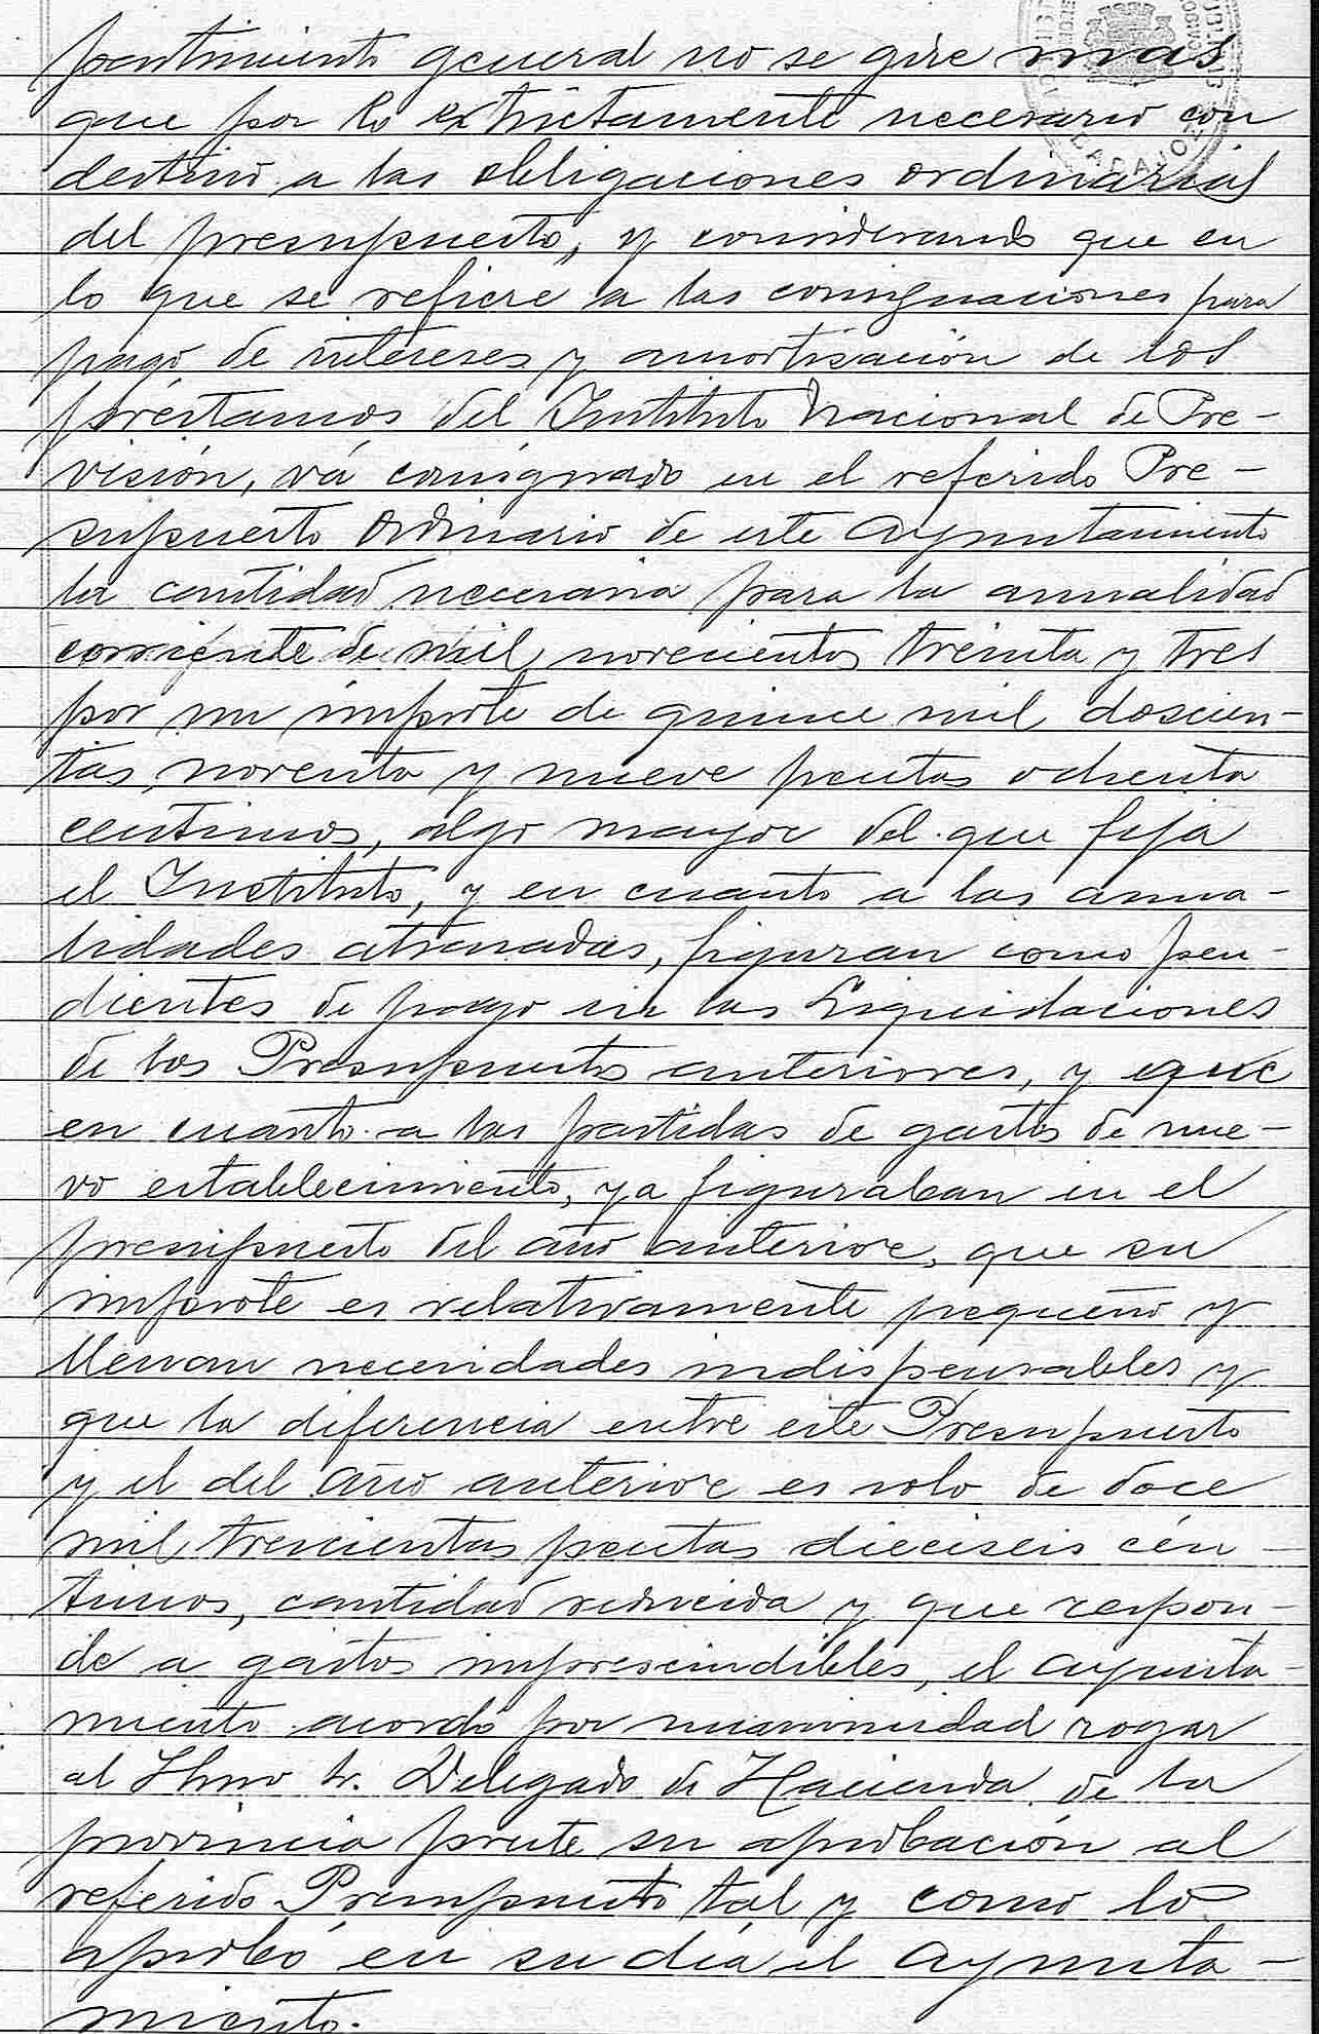 partimiento general no se gire mas
que por lo extrictamente necesario con
destino a las obligaciones ordinarias
del presupuesto, y considerando que en
lo que se refiere a las consignaciones para
pago de intereses y amortisación de los
préstamos del Instituto Nacional de Pre-
visión, vá consignado en el referido Pre-
supuesto Ordinario de este Ayuntamiento
la cantidad necesaria para la anualidad
corriente de mil novecientos treinta y tres
por un importe de quince mil doscien-
tas noventa y nueve pesetas ochenta
centimos, algo mayor del que fija
el Instituto, y en cuanto a las anua-
lidades atrasadas, figuran como pen-
dientes de pago en las Liquidaciones
de los Presupuestos anteriores, y que
en cuanto a las partidas de gastos de nue-
vo establecimiento, ya figuraban en el
presupuesto del año anterior, que su
importe es relativamente pequeño y
llenan necesidades indispensables y
que la diferencia entre este Presupuesto
y el del año anterior es solo de doce
mil trescientas pesetas dieciseis cén-
timos, cantidad reducida y que respon-
de a gastos imprescindibles, el Ayunta-
miento acordó por unanimidad rogar
al Ilmo Sr. Delegado de Hacienda de la
provincia preste su aprobación al
referido Presupuesto tal y como lo
aprobó en su día el Ayunta-
miento.
BADAJOZ